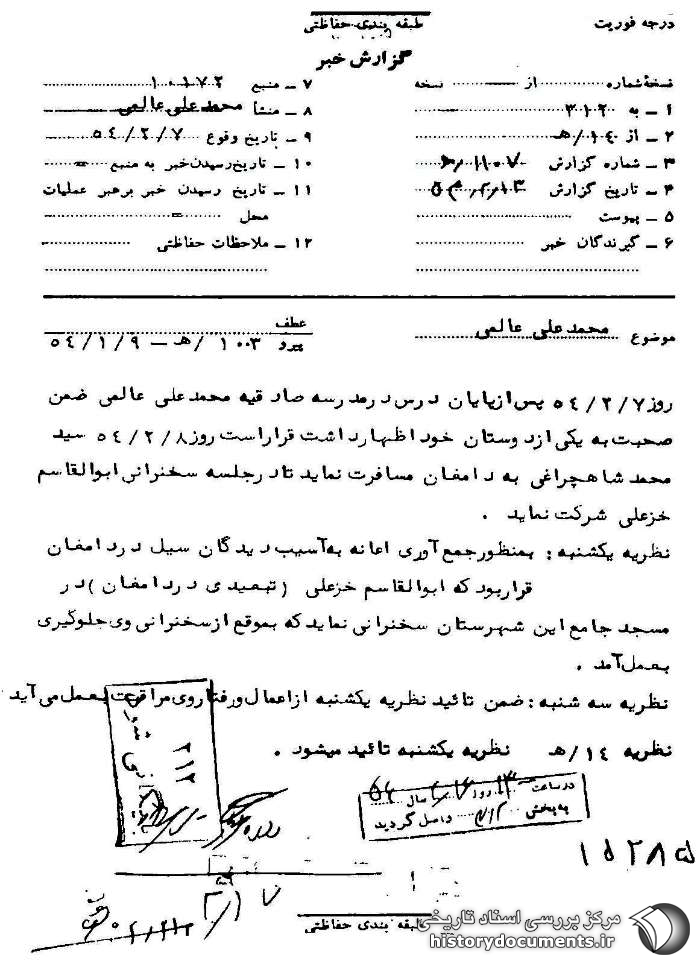 درجه فوریت
طبقه بندی حفاظتی
گزارش خبر
نسخهٔ شماره از نسخه
۱ - به ۳۱۲
۲ - از ۱٤/هـ
۳ - شماره گزارش
٤ - تاریخ گزارش
٥ - پیوست
٦ - گیرندگان خبر
۷ - منبع ۱۰۱۷۲
۸ - منشأ محمد علی عالمی
۹ - تاریخ وقوع ٥٤/۲/۷
۱۰ - تاریخ رسیدن خبر به منبع =
۱۱ - تاریخ رسیدن خبر برهبر عملیات
محل =
۱۲ - ملاحظات حفاظتی
موضوع محمد علی عالمی
عطف
پیرو ۱۰۰۳/هـ - ٥٤/۱/۹
روز ٥٤/۲/۷ پس از پایان درس در مدرسه صادقیه محمد علی عالمی ضمن
صحبت به یکی از دوستان خود اظهار داشت قرار است روز ٥٤/۲/۸ سید
محمد شاهچراغی به دامغان مسافرت نماید تا در جلسه سخنرانی ابوالقاسم
خزعلی شرکت نماید .
نظریه یکشنبه : بمنظور جمع آوری اعانه به آسیب دیدگان سیل در دامغان
قرار بود که ابوالقاسم خزعلی (تبعیدی در دامغان) در
مسجد جامع این شهرستان سخنرانی نماید که بموقع از سخنرانی وی جلوگیری
بعمل آمد .
نظریه سه شنبه : ضمن تائید نظریه یکشنبه از اعمال و رفتار وی مراقبت بعمل می آید
نظریه ۱٤/هـ نظریه یکشنبه تائید میشود .
۳۱۲
در ساعت روز سال ٥٤
به بخش ۳۱۲ واصل گردید
طبقه بندی حفاظتی
مرکز بررسی اسناد تاریخی
historydocuments.ir